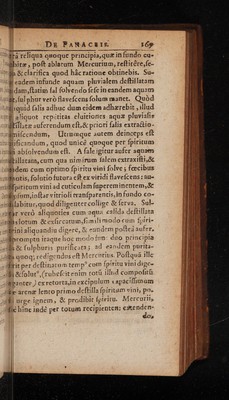 DE PANACEIS. 169
reliqua quoque principia, quæ in fundo cu-
post ablatum Mercurium, restitêre, se-
& clarifica quod hâc ratione obtinebis. Su-
eadem infunde aquam pluvialem destillatam
statim sal solvendo sese in eandem aquam
sulphur verò flavescens solum manet. Quòd
quid salis adhuc dum eidem adhærebit, illud
aliquot repetitas elutiones aquâ pluviali
destillatâ auferendum est, & priori salis extractio-
miscendum. Utrumque autem deinceps est
purificandum, quod unicè quoque per spiritum
vini absolvendum est. A sale igitur aufer aquam
destillatam, cum qua nimirum salem extraxisti, &
eundem cum optimo spiritu vini solve; fœcibus
solutio futura est ex viridi flavescens: sum
spiritum vini ad cuticulam supereminentem, &
instar vitrioli transparentis, in fundo co-
labitur, quod diligenter collige & serva. Sul-
phur verò aliquoties cum aqua calida destillata
elotum & exsiccatum, simili modo cum spiri-
tu vini aliquandiu digere, & eandem posteà aufer,
promptu itaque hoc modo sunt duo principia
& sulphuris purificata; ad eandem purita-
quoq; redigendus est Mercurius. Postquã ille
per destinatum temp⁹ cum spiritu vini dige-
& solut⁹, (rubescit enim totũ illud compositũ
) ex retorta, in excipulum capacissimum
arenæ lento primò destilla spiritum vini, po-
urge ignem, & prodibit spiritu⁹ Mercurii,
hinc inde per totum recipientem extenden-
do.